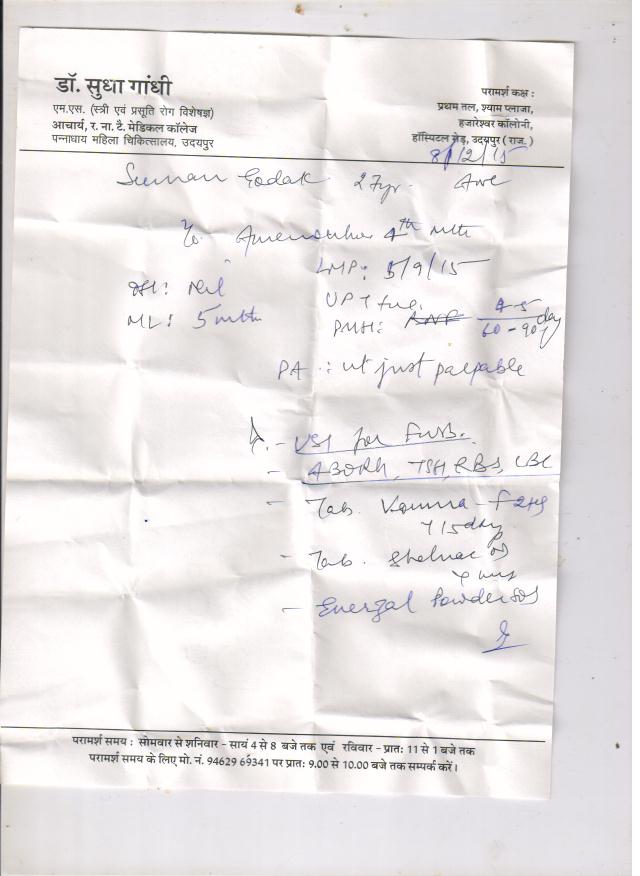 डॉ. सुधा गांधी
एम.एस. (स्त्री एवं प्रसूति रोग विशेषज्ञ)
आचार्य, र. ना. टै. मेडिकल कॉलेज
पन्नाधाय महिला चिकित्सालय, उदयपुर
परामर्श कक्ष :
प्रथम तल, श्याम प्लाजा,
हजारेश्वर कॉलोनी,
हॉस्पिटल रोड़, उदयपुर ( राज. )
8/12/15
Suman 27yr.
4th mth
LMP: 5/9/15
Nil
ML: 5 mth
UPT
PMH: 4-5
60-90 day
PA : ut just palpable
- USG for
- ABORh, TSH, RBS, CBC
- Tab.
15 day
- Tab. Shelcal
- Powder
परामर्श समय : सोमवार से शनिवार - सायं 4 से 8 बजे तक एवं रविवार - प्रातः 11 से 1 बजे तक
परामर्श समय के लिए मो. नं. 94629 69341 पर प्रातः 9.00 से 10.00 बजे तक सम्पर्क करें।